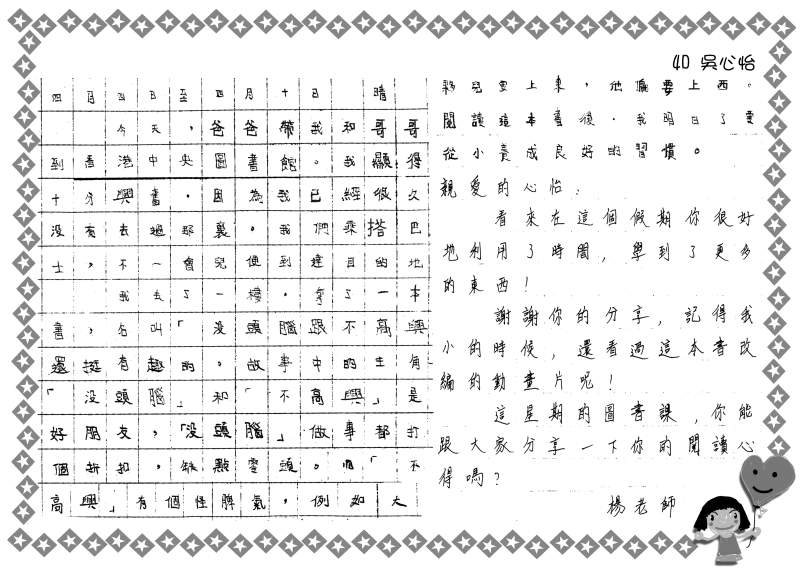 40 吳心怡
四月四日至四月十日 晴
今天，爸爸帶我和哥哥
到香港中央圖書館。我顯得
十分興奮，因為我已經很久
沒有去過那裏。我們乘搭巴
士，不一會兒便到達目的地
我去了一樓，拿了一本
書，名叫「沒頭腦跟不高興
還挺有趣的。故事中的主角
「沒頭腦」和「不高興」是
好朋友，「沒頭腦」做事都打
個折扣，缺點零頭。而「不
高興」有個性脾氣，例如大
夥兒要上東，他偏要上西。
閱讀這本書後，我明白了要
從小養成良好的習慣。
親愛的心怡：
看來在這個假期你很好
地利用了時間，學到了更多
的東西！
謝謝你的分享，記得我
小的時候，還看過這本書改
編的動畫片呢！
這星期的圖書課，你能
跟大家分享一下你的閱讀心
得嗎？
楊老師